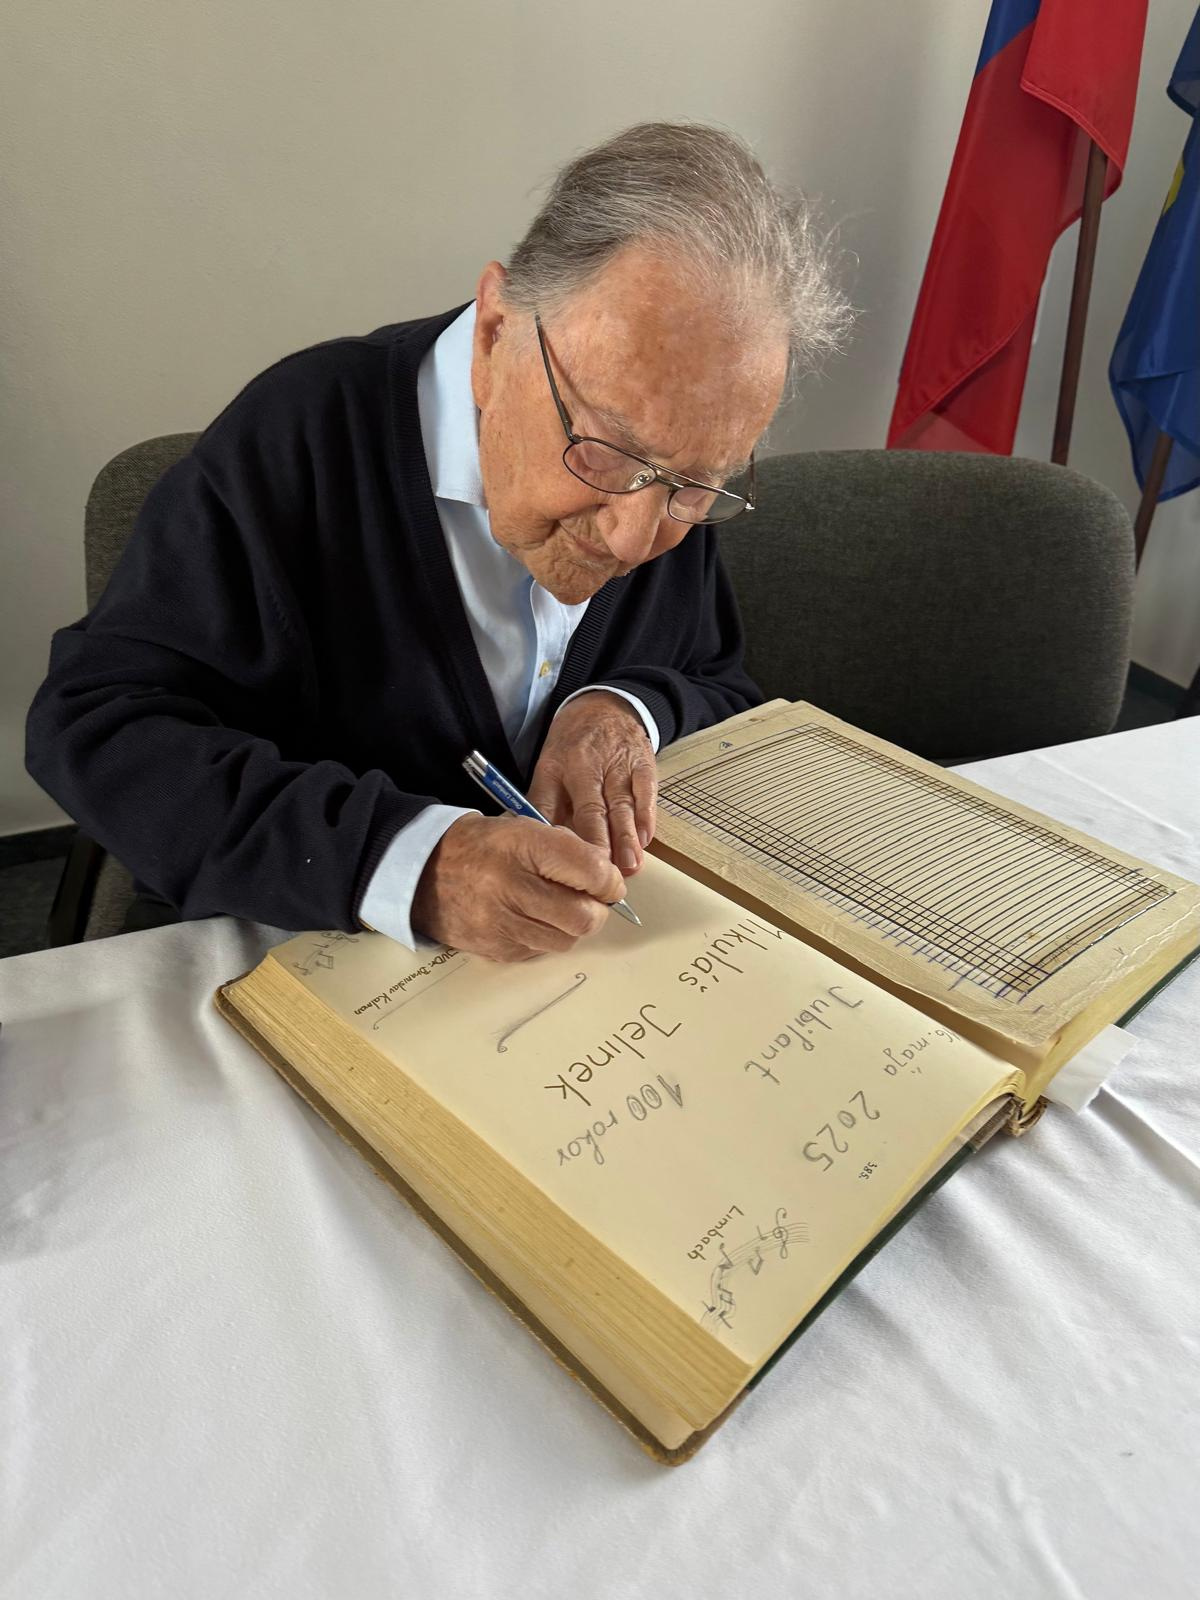 385.
Limbach
16. mája 2025
Jubilant
100 rokov
Mikuláš Jelinek
JUDr. Branislav Kalman
Obec Limbach